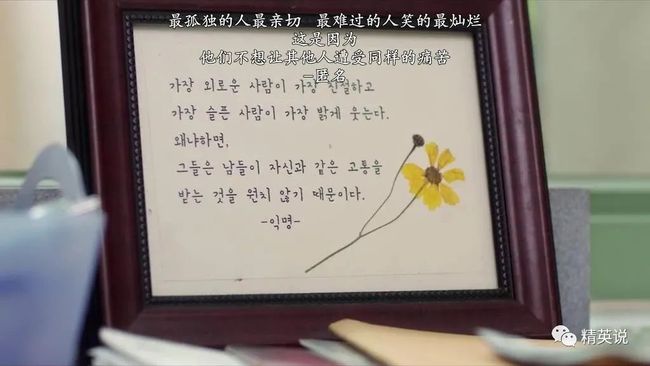 最孤独的人最亲切 最难过的人笑的最灿烂
这是因为
他们不想让其他人遭受同样的痛苦
-匿名
가장 외로운 사람이 가장 친절하고
가장 슬픈 사람이 가장 밝게 웃는다.
왜냐하면,
그들은 남들이 자신과 같은 고통을
받는 것을 원치 않기 때문이다.
-익명-
精英说